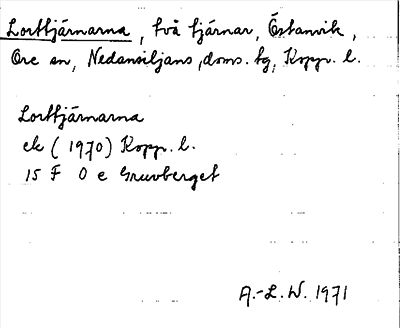 Lorttjärnarna, två tjärnar, Östanvik,
Ore sn, Nedansiljans doms. tg, Kopp. l.
Lorttjärnarna
ek (1970) Kopp. l.
15 F 0 e Gruvberget
A.-L. W. 1971